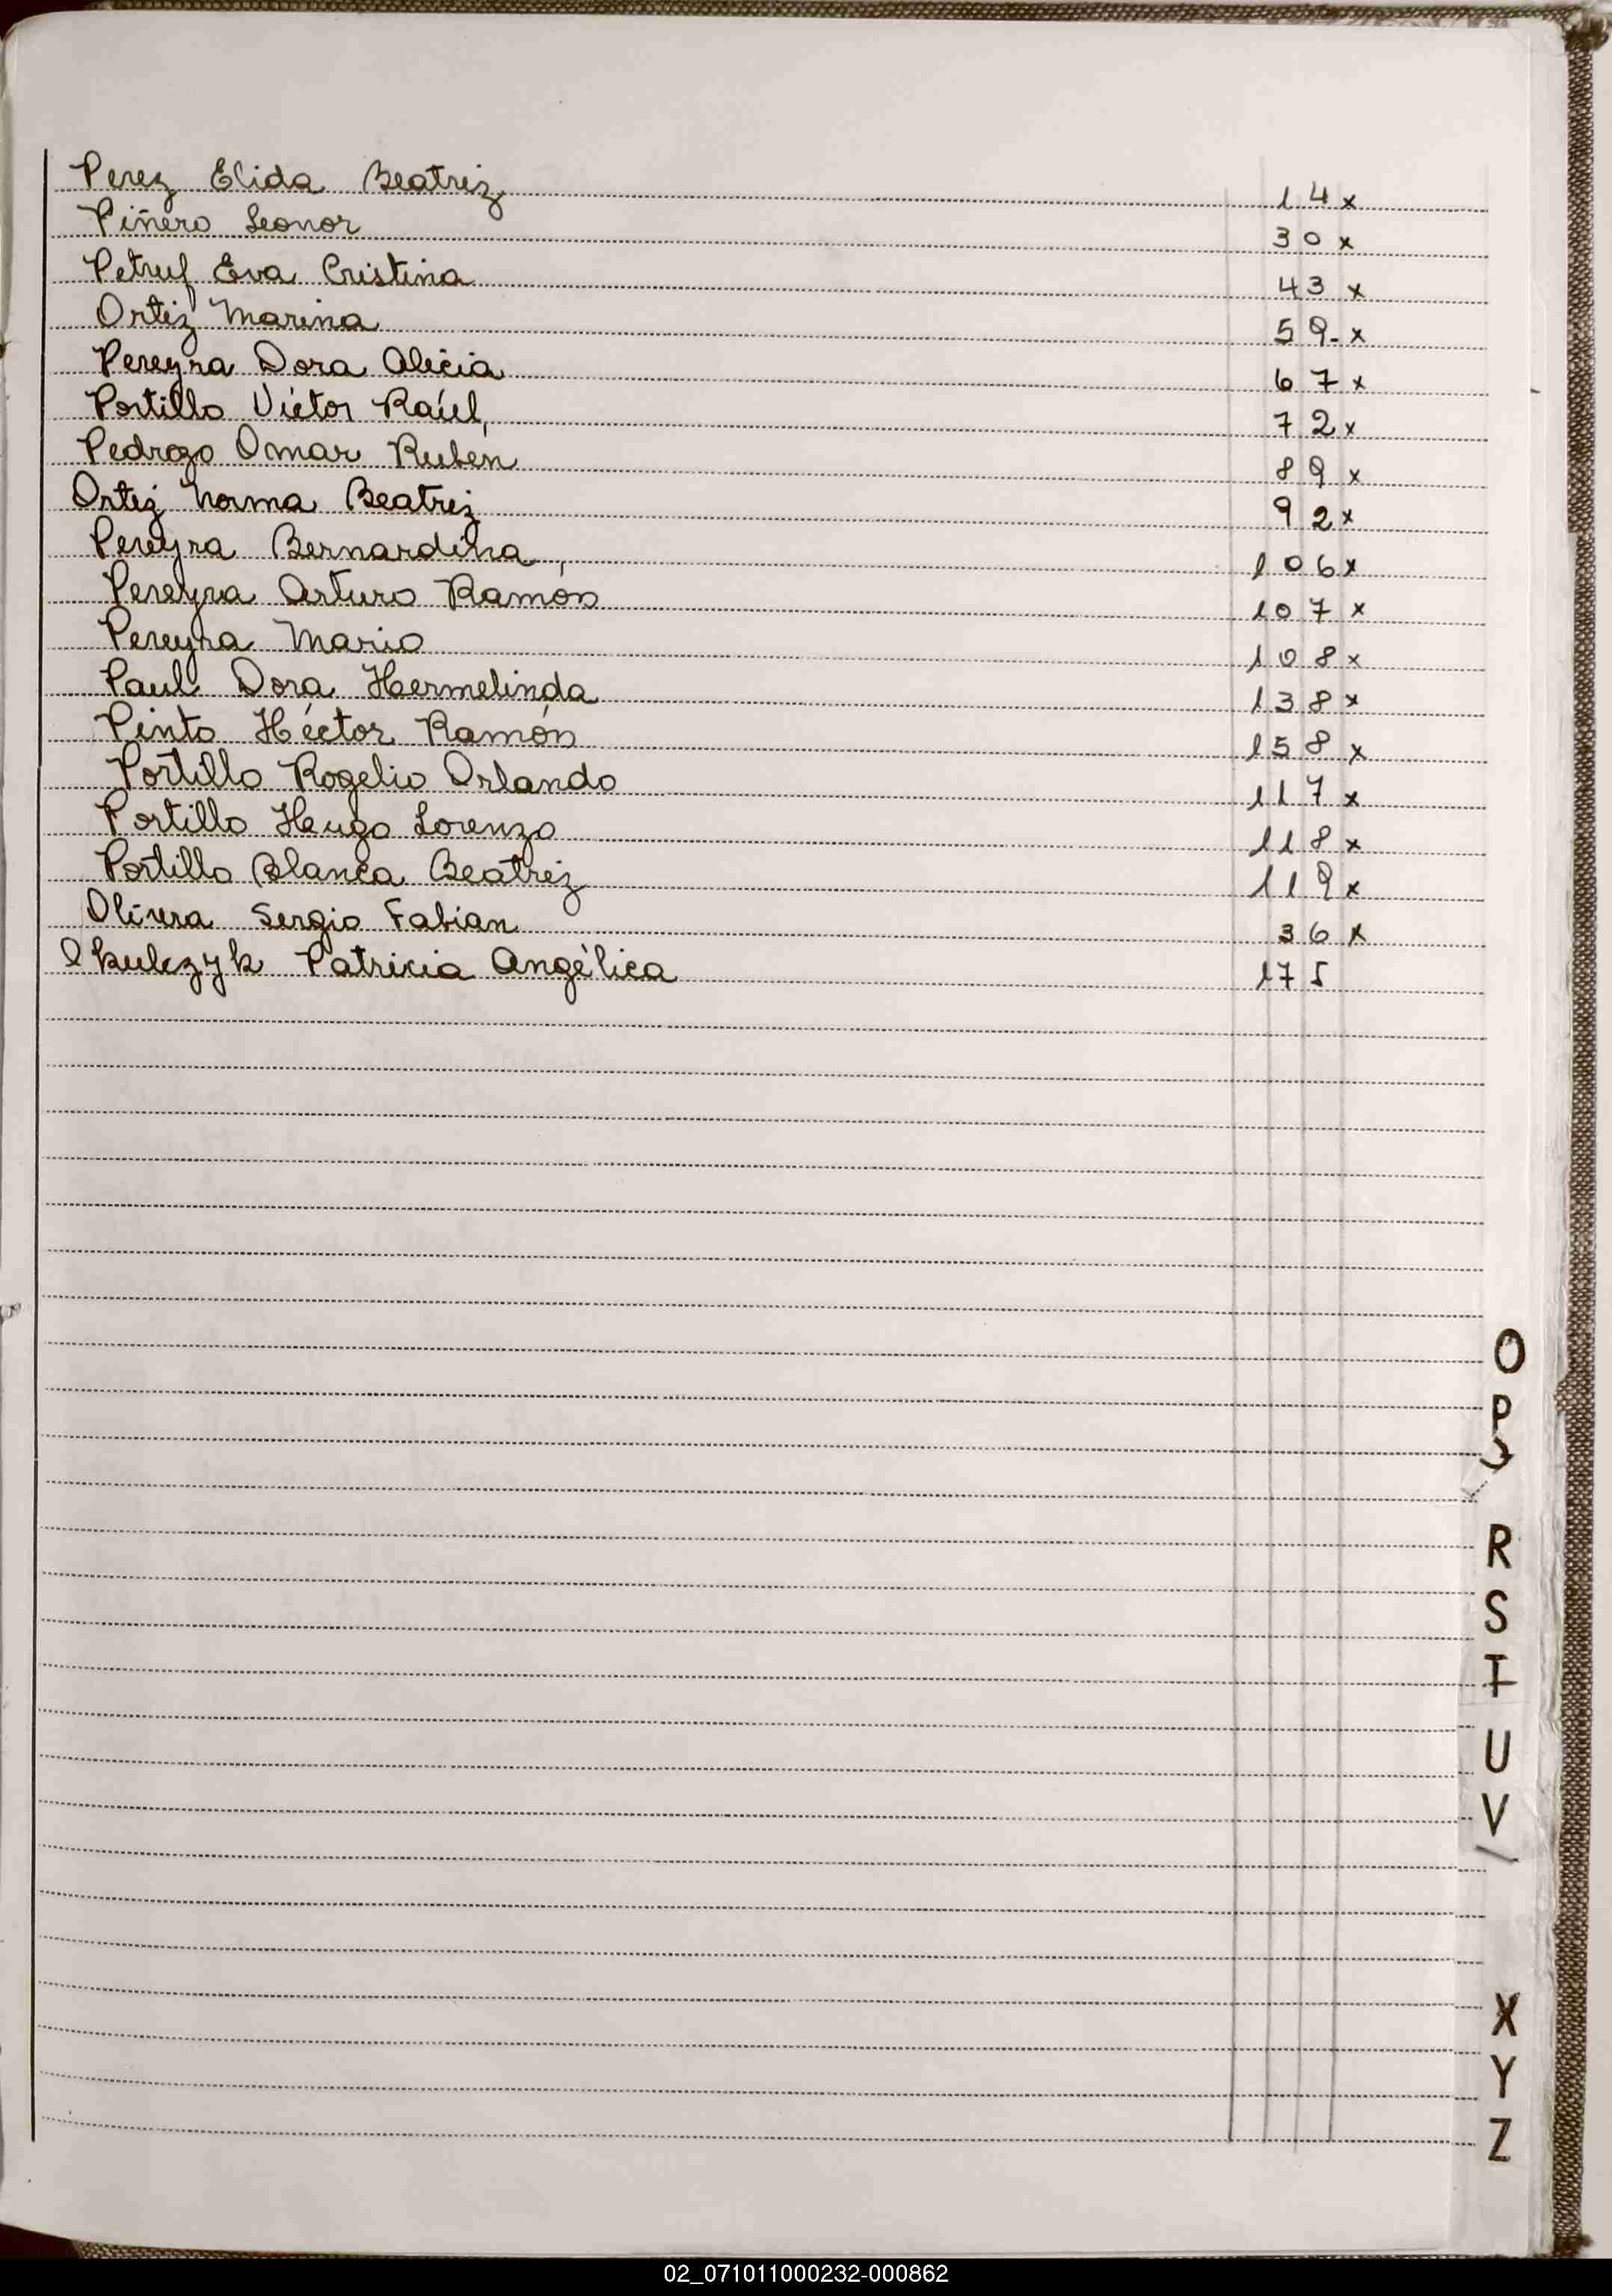 Perez Elida Beatriz 14 x
Piñero Leonor 30 x
Petruf Eva Cristina 43 x
Ortiz Marina 59- x
Pereyra Dora Alicia 67 x
Portillo Víctor Raúl, 72 x
Pedrozo Omar Ruben 89 x
Ortiz Norma Beatriz 92 x
Pereyra Bernardina, 106 x
Pereyra Arturo Ramón 107 x
Pereyra Mario 108 x
Paul Dora Hermelinda 138 x
Pinto Héctor Ramón 158 x
Portillo Rogelio Orlando 117 x
Portillo Hugo Lorenzo 118 x
Portillo Blanca Beatriz 119 x
Olivera Sergio Fabian 36 x
Patricia Angélica 175
O
P
R
S
T
U
V
X
Y
Z
02_071011000232-000862